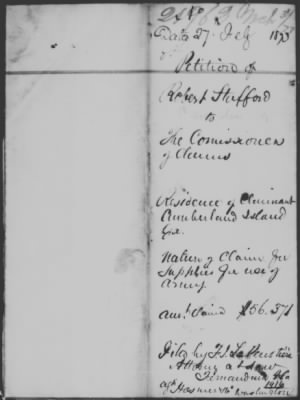 Date 27. July 1873
Petition of
Robert Stafford
to
The Comissioners
of Claims
Residence of Claimant
Cumberland Island
Ga.
Nature of Claim for
Supplies for use of
Army.
amt. Claimd $56.371
Filed by
Attorney at Law
Fernandina Fla
Washington